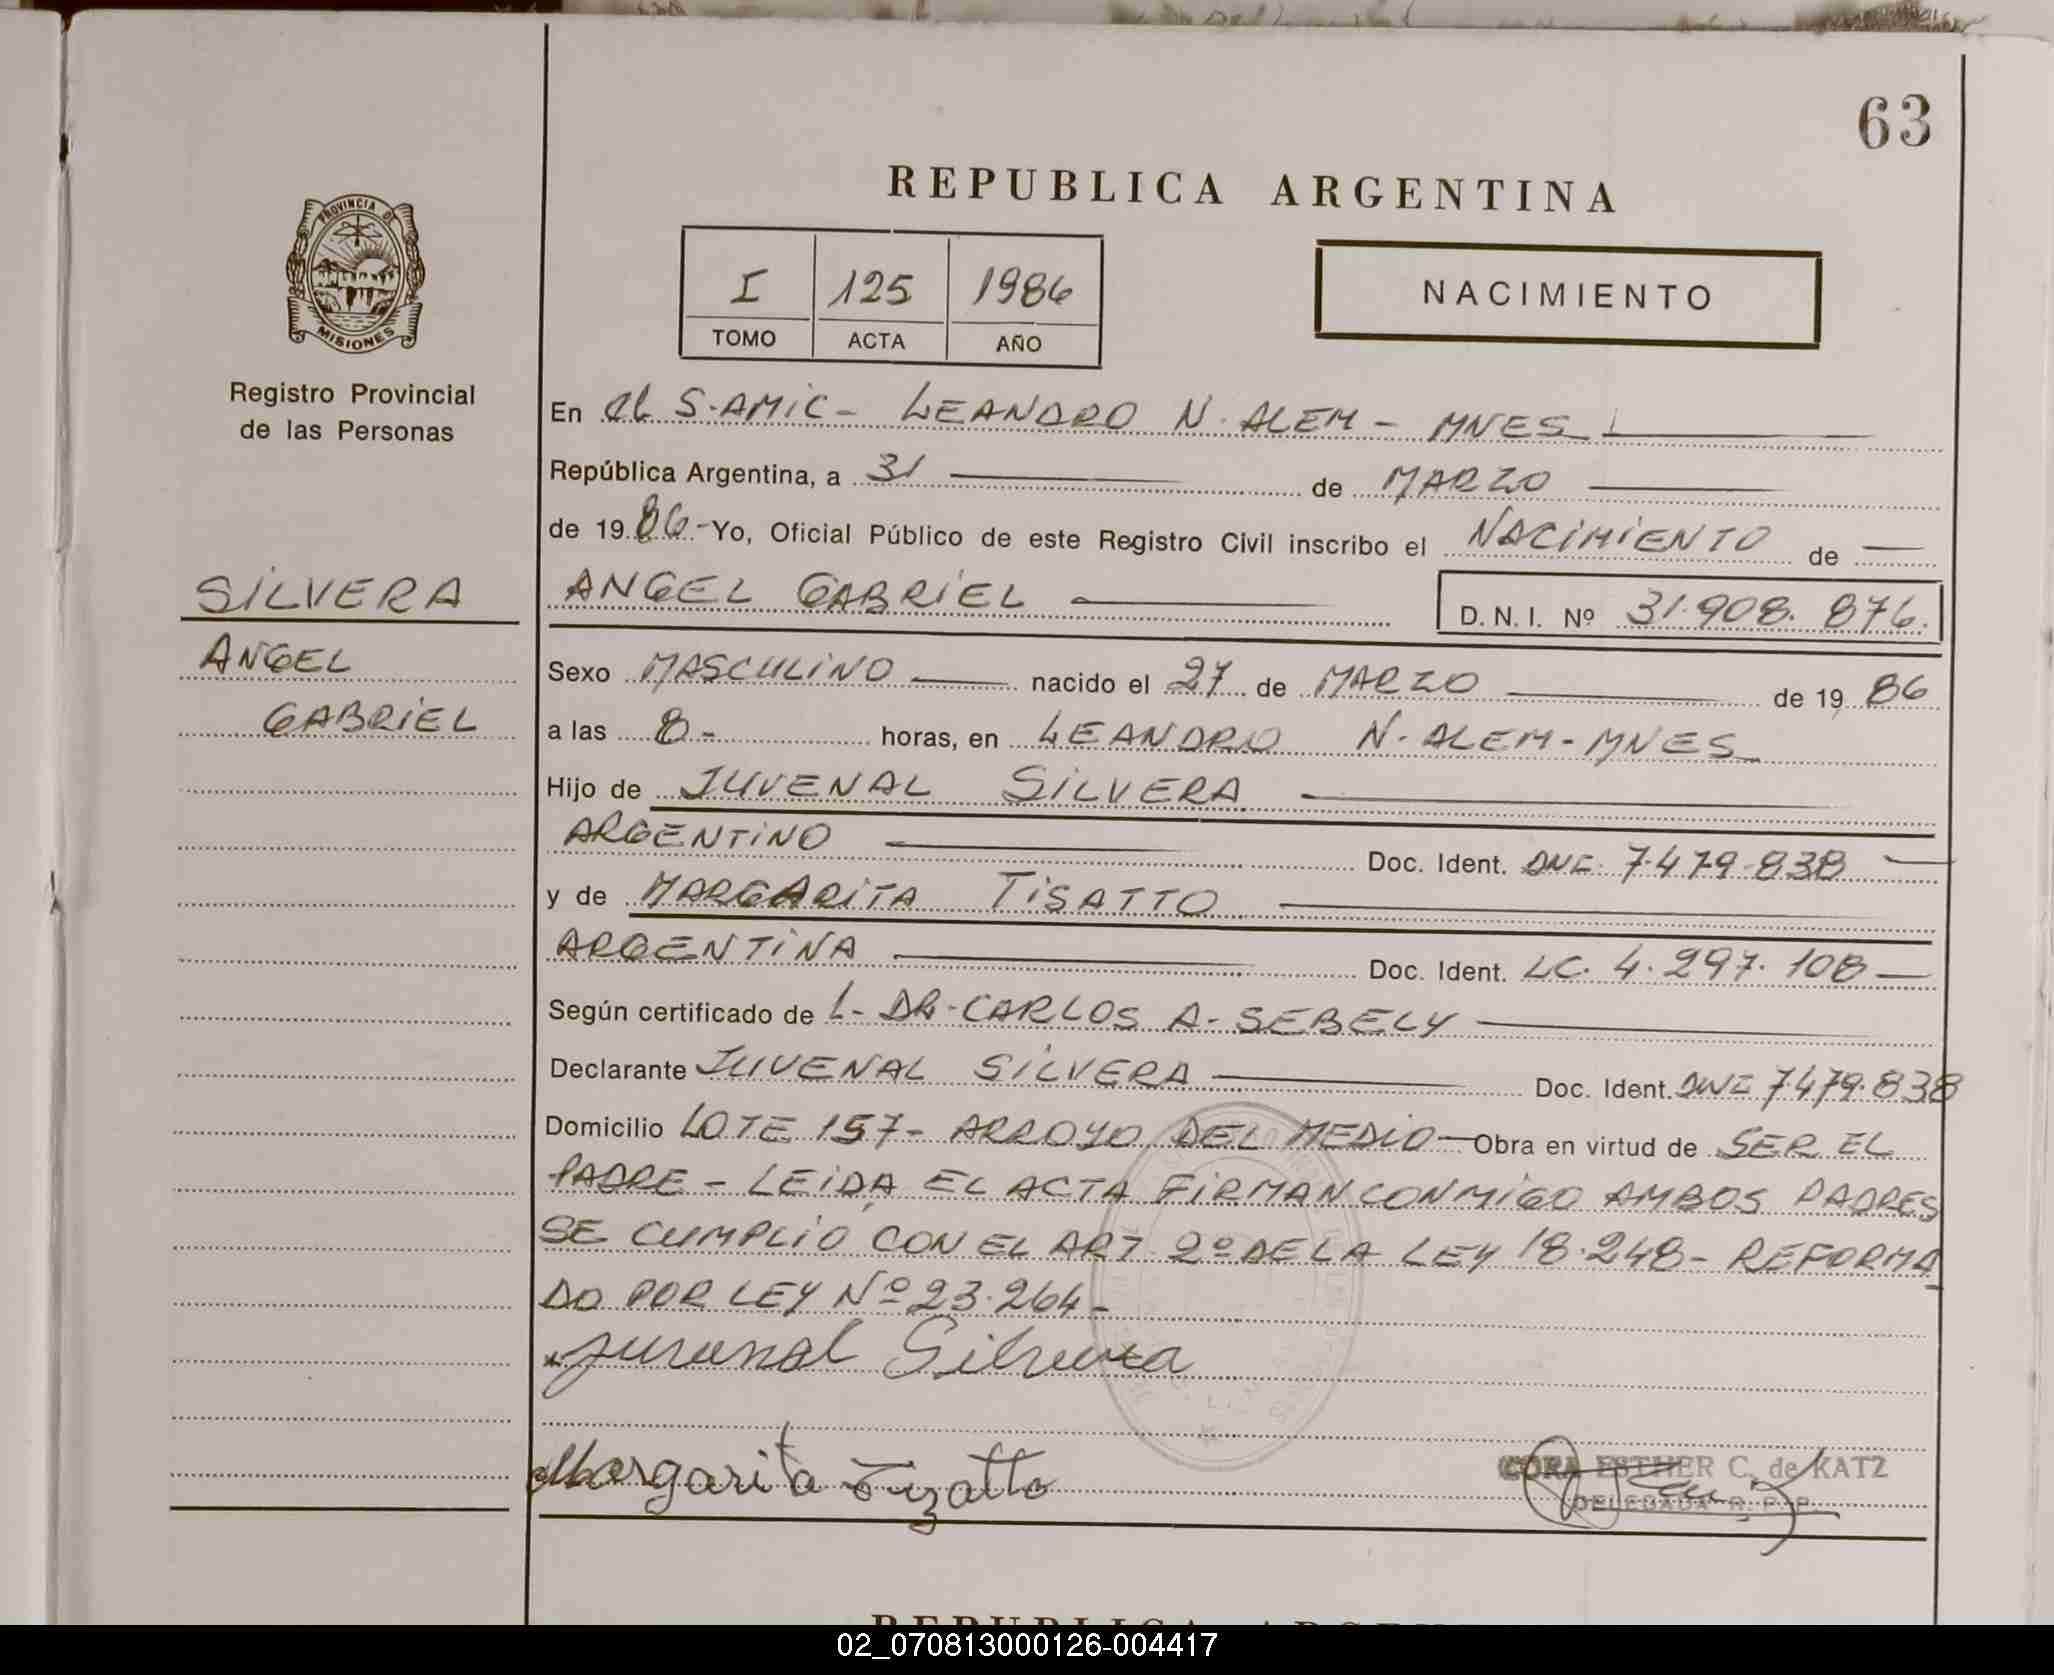 63
REPUBLICA ARGENTINA
PROVINCIA DE
MISIONES
I 125 1986
TOMO ACTA AÑO
NACIMIENTO
Registro Provincial
de las Personas
SILVERA
ANGEL
GABRIEL
En el S.AMIC - LEANDRO N. ALEM - MNES
República Argentina, a 31 de MARZO
de 19 86 - Yo, Oficial Público de este Registro Civil inscribo el NACIMIENTO de
ANGEL GABRIEL D. N. I. Nº 31.908.876.
Sexo MASCULINO nacido el 27 de MARZO de 19 86
a las 8 - horas, en LEANDRO N. ALEM - MNES
Hijo de JUVENAL SILVERA
ARGENTINO Doc. Ident. DNI. 7.479.838
y de MARGARITA TISATTO
ARGENTINA Doc. Ident. LC. 4.297.108
Según certificado de L - DR. CARLOS A. SEBELY
Declarante JUVENAL SILVERA Doc. Ident. DNI 7.479.838
Domicilio LOTE 157 - ARROYO DEL MEDIO Obra en virtud de SER EL
PADRE - LEIDA EL ACTA FIRMAN CONMIGO AMBOS PADRES
SE CUMPLIO CON EL ART 2º DE LA LEY 18.248 - REFORMA
DO POR LEY Nº 23.264 -
Juvenal Silvera
Margarita Tizatto
CORA ESTHER C. de KATZ
DELEGADA R. P. P.
REPUBLICA ARGENTINA
02_070813000126-004417